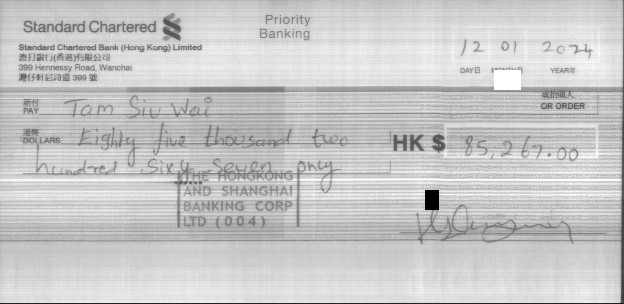 Standard Chartered
Priority
Banking
Standard Chartered Bank (Hong Kong) Limited
渣打銀行(香港)有限公司
399 Hennessy Road, Wanchai
灣仔軒尼詩道 399 號
12 01 2024
DAY日 MONTH月 YEAR年
祈付
PAY Tam Siu Wai
或抬頭人
OR ORDER
港幣
DOLLARS Eighty five thousand two
hundred Sixy Seven only
HK $ 85,267.00
THE HONGKONG
AND SHANGHAI
BANKING CORP
LTD (004)